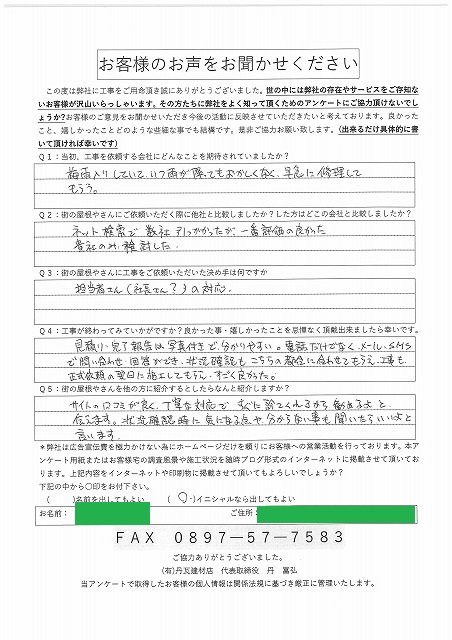 お客様のお声をお聞かせください
この度は弊社に工事をご用命頂き誠にありがとうございました。世の中には弊社の存在やサービスをご存知な
いお客様が沢山いらっしゃいます。その方たちに弊社をよく知って頂くためのアンケートにご協力頂けないでし
ょうか?お客様のご意見をお聞かせいただき今後の活動に反映させていただきたいと考えております。良かった
こと、嬉しかったことどのような些細な事でも結構です。是非ご協力お願い致します。(出来るだけ具体的に書
いて頂ければ幸いです)
Q1:当初、工事を依頼する会社にどんなことを期待されていましたか?
梅雨入りしていて、いつ雨が降ってもおかしくなく、早急に修理して
もらう。
Q2:街の屋根やさんにご依頼いただく際に他社と比較しましたか?した方はどこの会社と比較しましたか?
ネット検索で数社ひっかかったが、一番評価の良かった
貴社のみ検討した。
Q3:街の屋根やさんに工事をご依頼いただいた決め手は何ですか
担当者さん(社長さん?)の対応。
Q4:工事が終わってみていかがですか?良かった事・嬉しかったことを忌憚なく頂戴出来ましたら幸いです。
見積り・完了報告は写真付きで、分かりやすい。電話だけでなく、メール、SMS
で問い合わせ・回答ができ、状況確認もこちらの都合に合わせてもらえ、工事も
正式依頼の翌日に施工してもらえ、すごく良かった。
Q5:街の屋根やさんを他の方に紹介するとしたらなんと紹介しますか?
サイトの口コミが良く、丁寧な対応で、すぐに診てくれるから勧めるよと
伝えます。状況確認時に気になる点や分からない事も聞いたらいいよと
言います。
*弊社は広告宣伝費を極力かけない為にホームページだけを頼りにお客様への営業活動を行っております。本ア
ンケート用紙またはお客様宅の調査風景や施工状況を随時ブログ形式のインターネットに掲載させて頂いてお
ります。上記内容をインターネットや印刷物に掲載させて頂いてもよろしいでしょうか?
下記の中から○印をお付下さい。
( )名前を出してもよい ( ○ )イニシャルなら出してもよい
お名前: ご住所:
FAX 0897-57-7583
ご協力ありがとうございました。
(有)丹瓦建材店 代表取締役 丹 富弘
当アンケートで取得したお客様の個人情報は関係法規に基づき厳正に管理いたします。